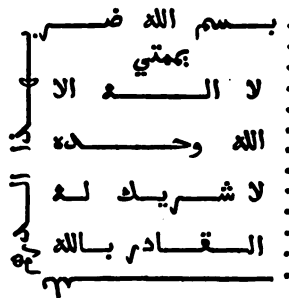 بسم الله ضر
لا اله الا
الله وحده
لا شريك له
القادر بالله